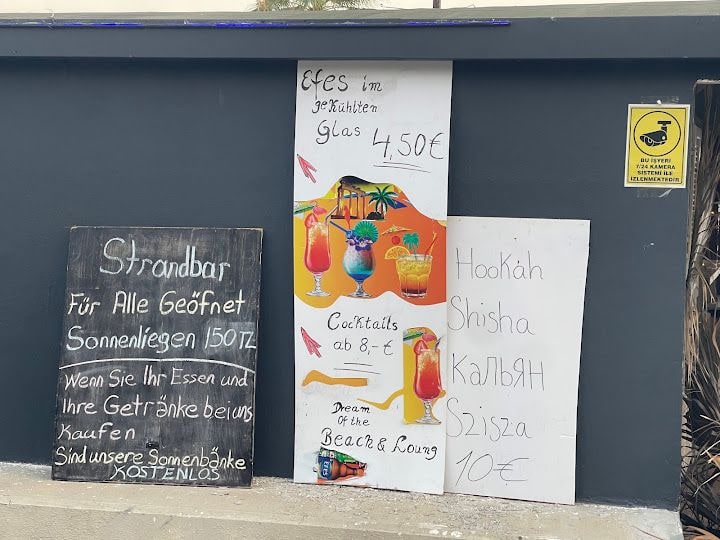 Strandbar
Für Alle Geöfnet
Sonnenliegen 150TL
Wenn Sie Ihr Essen und
Ihre Getränke bei uns
Kaufen
Sind unsere Sonnenbänke
KOSTENLOS
Efes im
geKühlten
Glas 4,50€
Cocktails
ab 8,-€
Dream
Of the
Beach & Loung
Hookah
Shisha
Кальян
Szisza
10€
BU İŞYERİ
7/24 KAMERA
SİSTEMİ İLE
İZLENMEKTEDİR